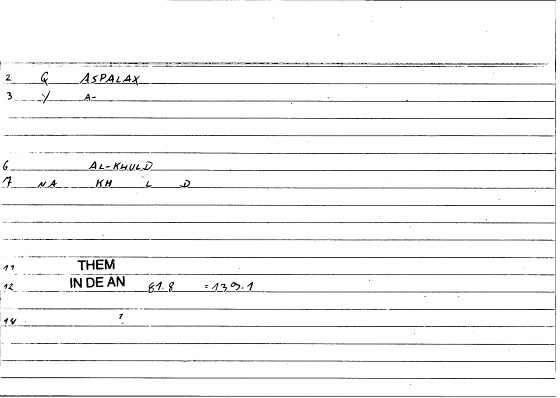 2 G ASPALAX
3 Y A-
6 AL-KHULD
7 NA KH L D
11 THEM
12 IN DE AN 81.8 =139.1
14 ?